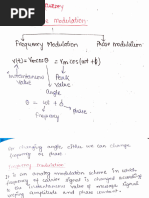 Modulation
Frequency Modulation
Phase Modulation
v(t) = Vm cos θ = Vm cos (ωt + ϕ)
Instantaneous
value
Peak
value
Angle
θ = ωt + ϕ
Frequency
Phase
On changing angle, either we can change
frequency or phase
Frequency Modulation
It is an analog modulation scheme in which
frequency of carrier signal is changed according
to the instantaneous value of message signal
keeping amplitude and phase constant